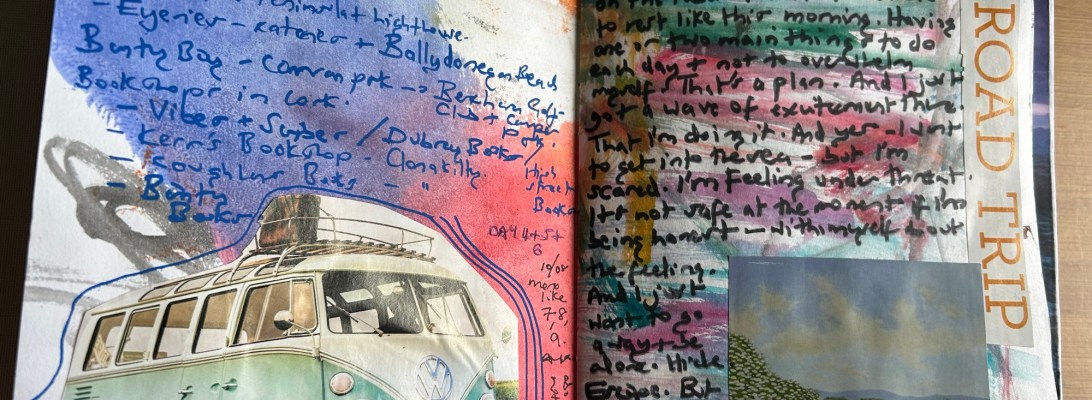 - Eyeries - + Ballydonegan Beach
Bantry Bay - Caravan park ->
Bookshops in Cork.
- Vibes + Scribes / Dubray Books /
- Kerr's Bookshop - Clonakilty.
- Books - "
- Bantry
Books.
High
Street
Books
DAY 4+5+
6
more
like
7,8,
9.
to rest like this morning. Having
one or two main things to do
each day + not to overwhelm
myself. That's a plan. And I just
got a wave of excitement there.
That I'm doing it. And yes - I want
to get into the sea - but I'm
scared. I'm feeling under threat.
It's not safe at the moment if I'm
being honest - with myself about
the feeling.
And I just
want to go
away + be
alone. Hide
Escape. But
ROAD TRIP